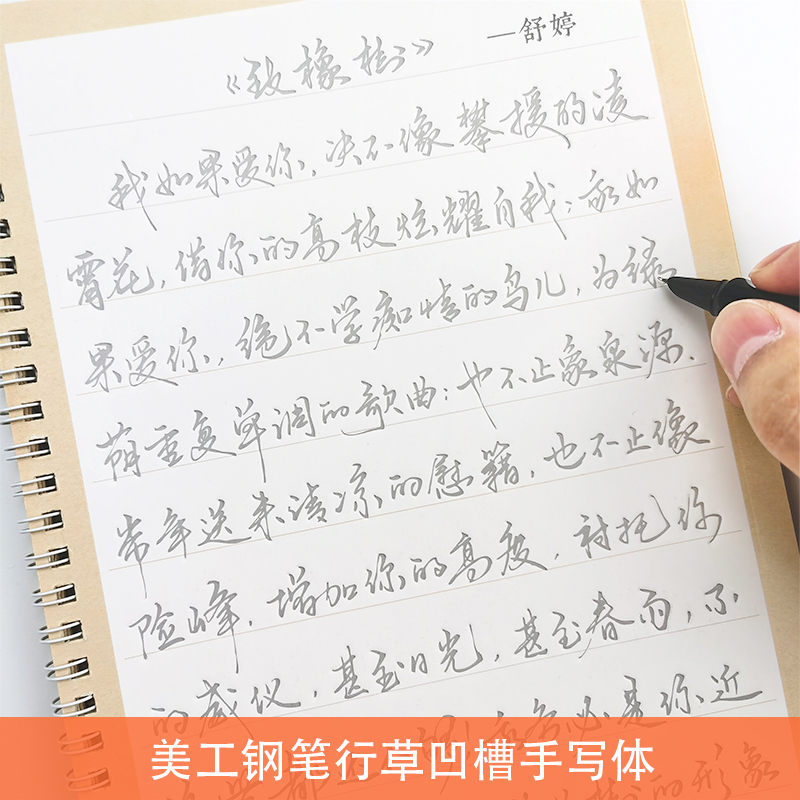 《致橡树》 —舒婷
我如果爱你，决不像攀援的凌
霄花，借你的高枝炫耀自我；我如
果爱你，绝不学痴情的鸟儿，为绿
荫重复单调的歌曲；也不止象泉源，
常年送来清凉的慰籍，也不止像
险峰，增加你的高度，衬托你
的威仪，甚至日光，甚至春雨，不
是你近
的形象
美工钢笔行草凹槽手写体